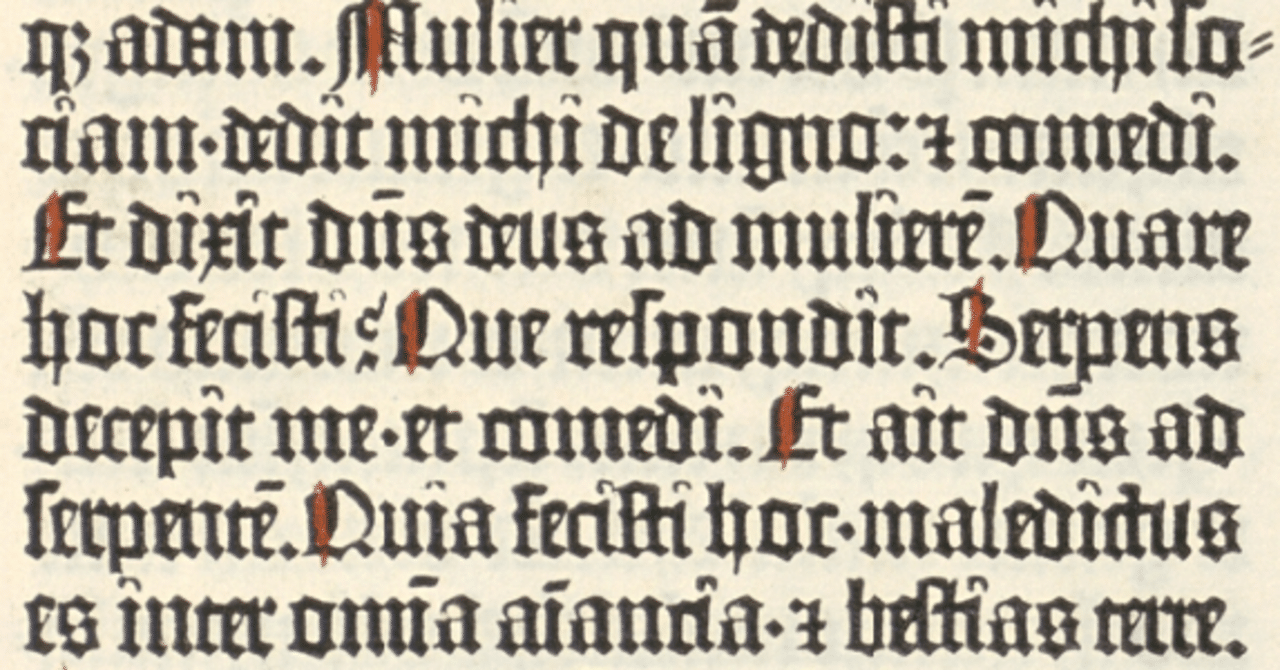 qꝫ adam. Mulier quā dedisti michi so⸗
ciam·dedit michi de ligno: ⁊ comedi.
Et dixit dn̄s deus ad mulierē. Quare
hoc fecisti? Que respondit. Serpens
decepit me·et comedi. Et ait dn̄s ad
serpentē. Quia fecisti hoc·maledictus
es inter om̄ia aīancia·⁊ bestias terre.